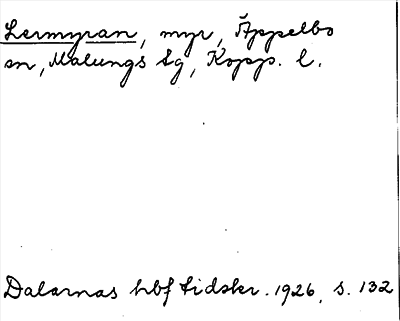 Lermyran, myr, Äppelbo
sn, Malungs tg, Kopp. l.
Dalarnas hbf tidskr. 1926, s. 132